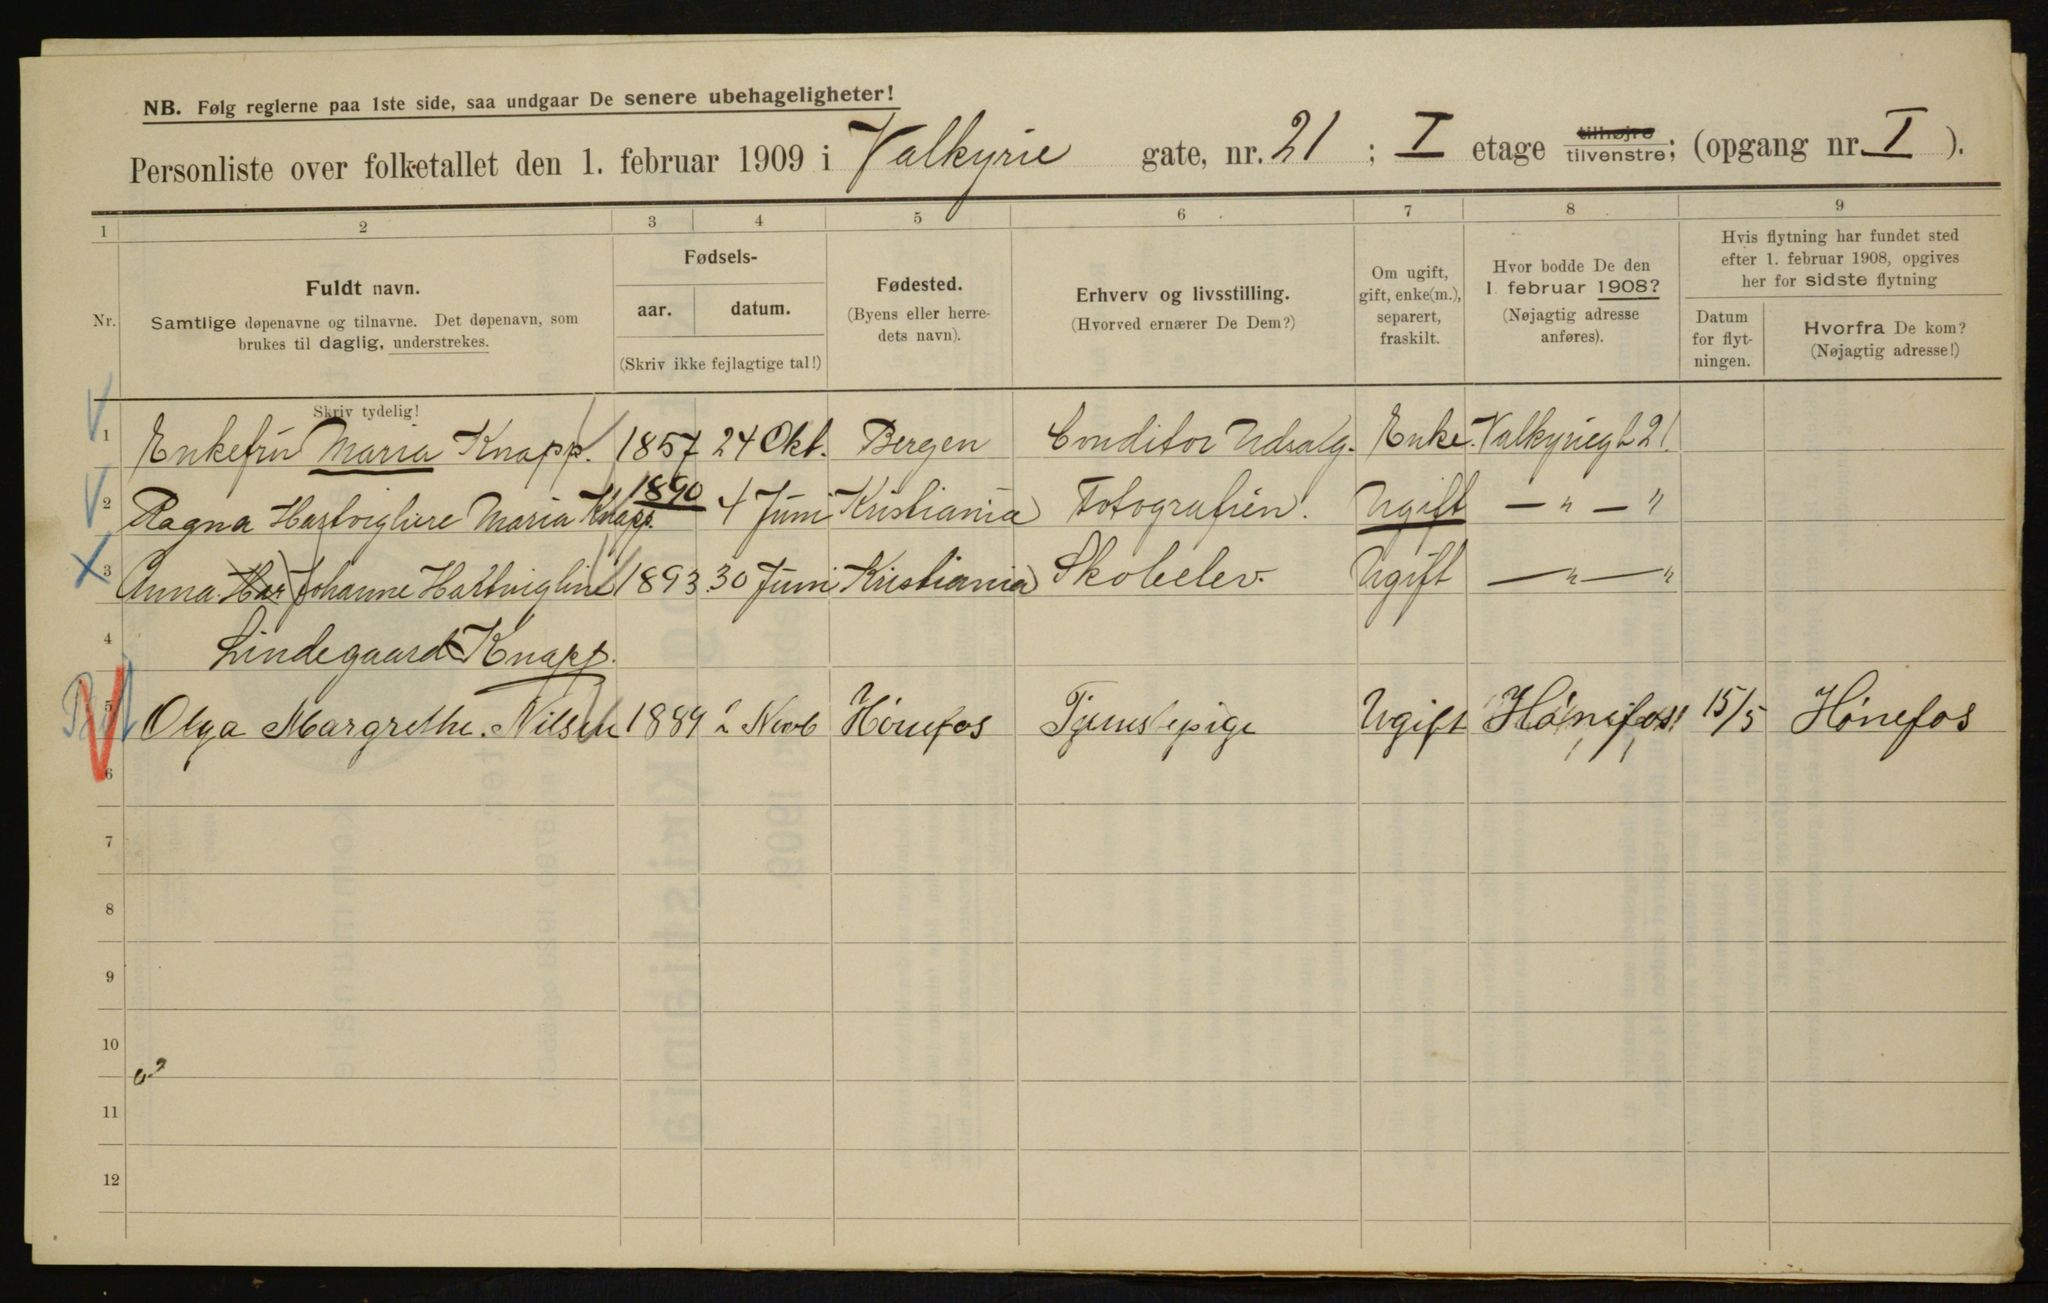 NB. Følg reglerne paa 1ste side, saa undgaar De senere ubehageligheter!
Personliste over folketallet den 1. februar 1909 i Valkyrie gate, nr. 21 ; I etage tilhøjre tilvenstre; (opgang nr. I ).
1 2 3 4 5 6 7 8 9
Nr.
Fuldt navn.
Samtlige døpenavne og tilnavne. Det døpenavn, som
brukes til daglig, understrekes.
Skriv tydelig!
Fødsels-
aar. datum.
(Skriv ikke fejlagtige tal!)
Fødested.
(Byens eller herre-
dets navn).
Erhverv og livsstilling.
(Hvorved ernærer De Dem?)
Om ugift,
gift, enke(m.),
separert,
fraskilt.
Hvor bodde De den
1. februar 1908?
(Nøjagtig adresse
anføres).
Hvis flytning har fundet sted
efter 1. februar 1908, opgives
her for sidste flytning
Datum
for flyt-
ningen.
Hvorfra De kom?
(Nøjagtig adresse!)
1 Enkefru Maria Knapp. 1857 24 Okt. Bergen Conditor Udsalg. Enke. Valkyriegt 21.
2 Ragna Hartvigline Maria Knapp. 1890 4 Juni Kristiania Fotografien. Ugift — " — "
3 Anna Har Johanne Hartvigline 1893 30 Juni Kristiania Skoleelev. Ugift — " — "
4 Lindegaard Knapp.
5 Olga Margrethe Nilsen 1889 2 Novb Hønefos Tjenstepige Ugift Hønefos 15/5 Hønefos
6
7
8
9
10
11
12